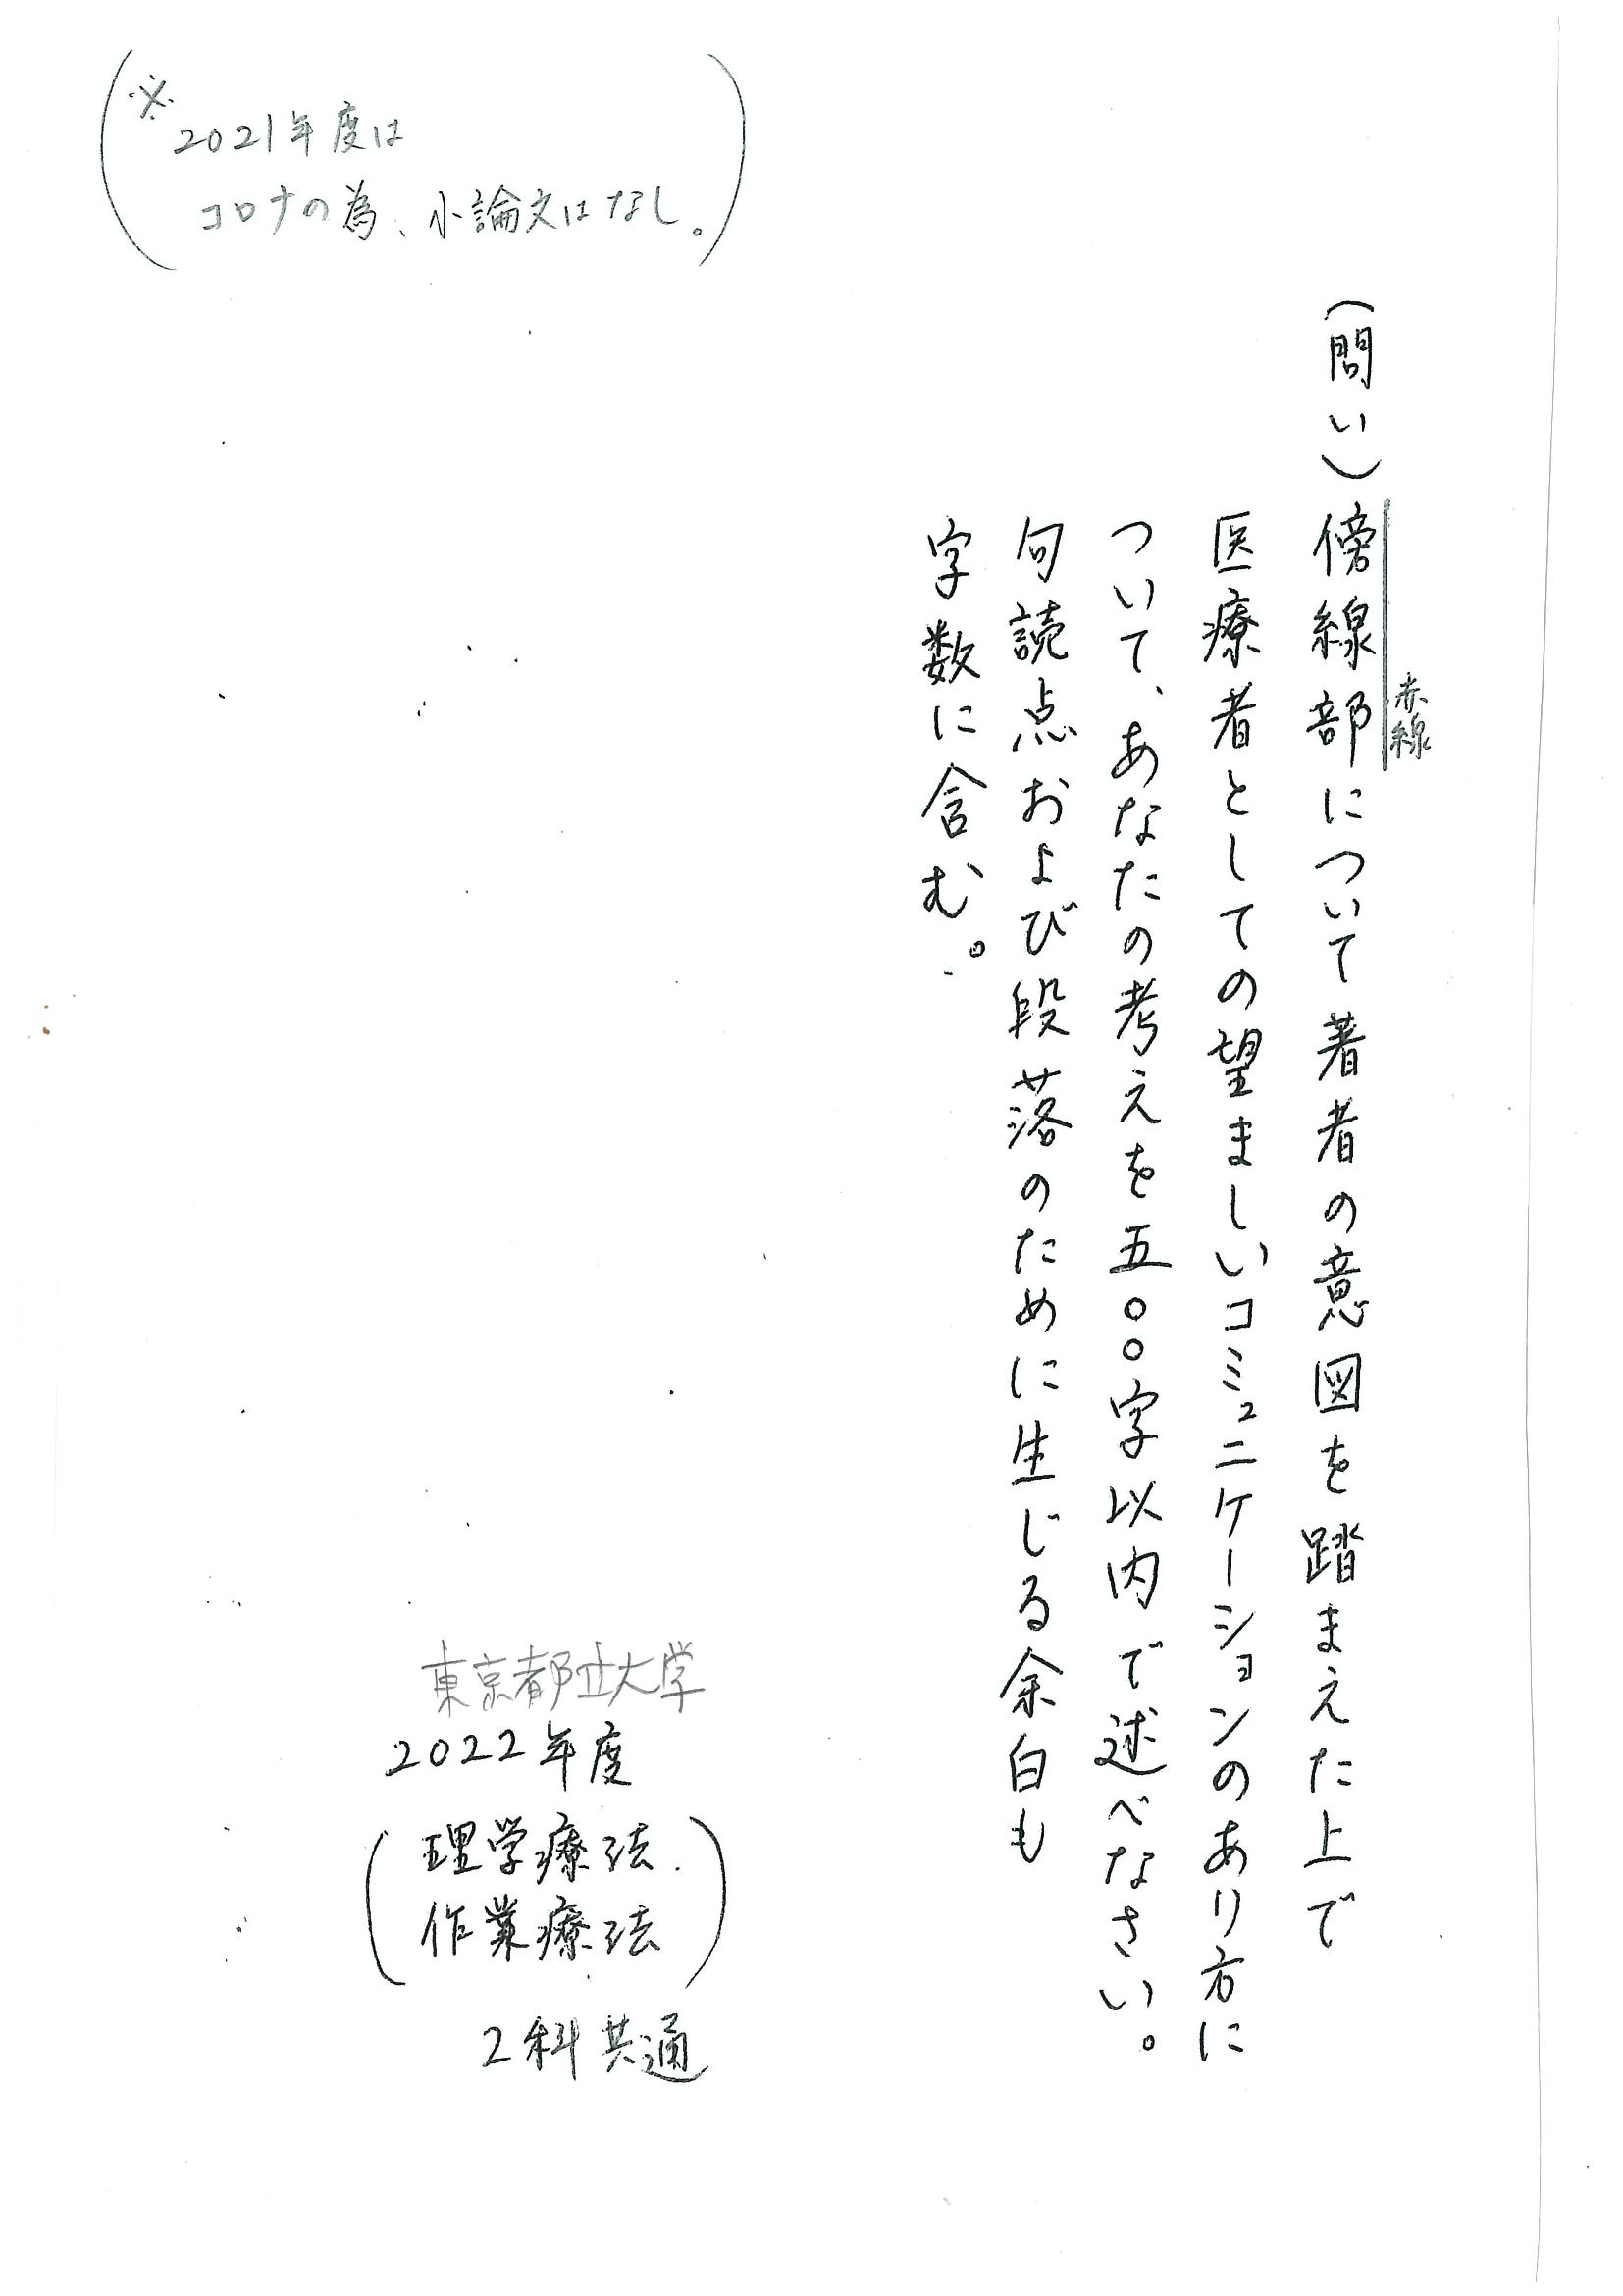 ※
2021年度は
コロナの為、小論文はなし。
(問い)傍線部について著者の意図を踏まえた上で
赤線
医療者としての望ましいコミュニケーションのあり方に
ついて、あなたの考えを五〇〇字以内で述べなさい。
句読点および段落のために生じる余白も
字数に含む。
東京都立大学
2022年度
(理学療法.
作業療法)
2科共通